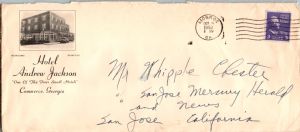 Hotel
Andrew Jackson
"One Of The Finer Small Hotels"
Commerce, Georgia
Mr Whipple Chester
San Jose Mercury Herald
and News
San Jose California